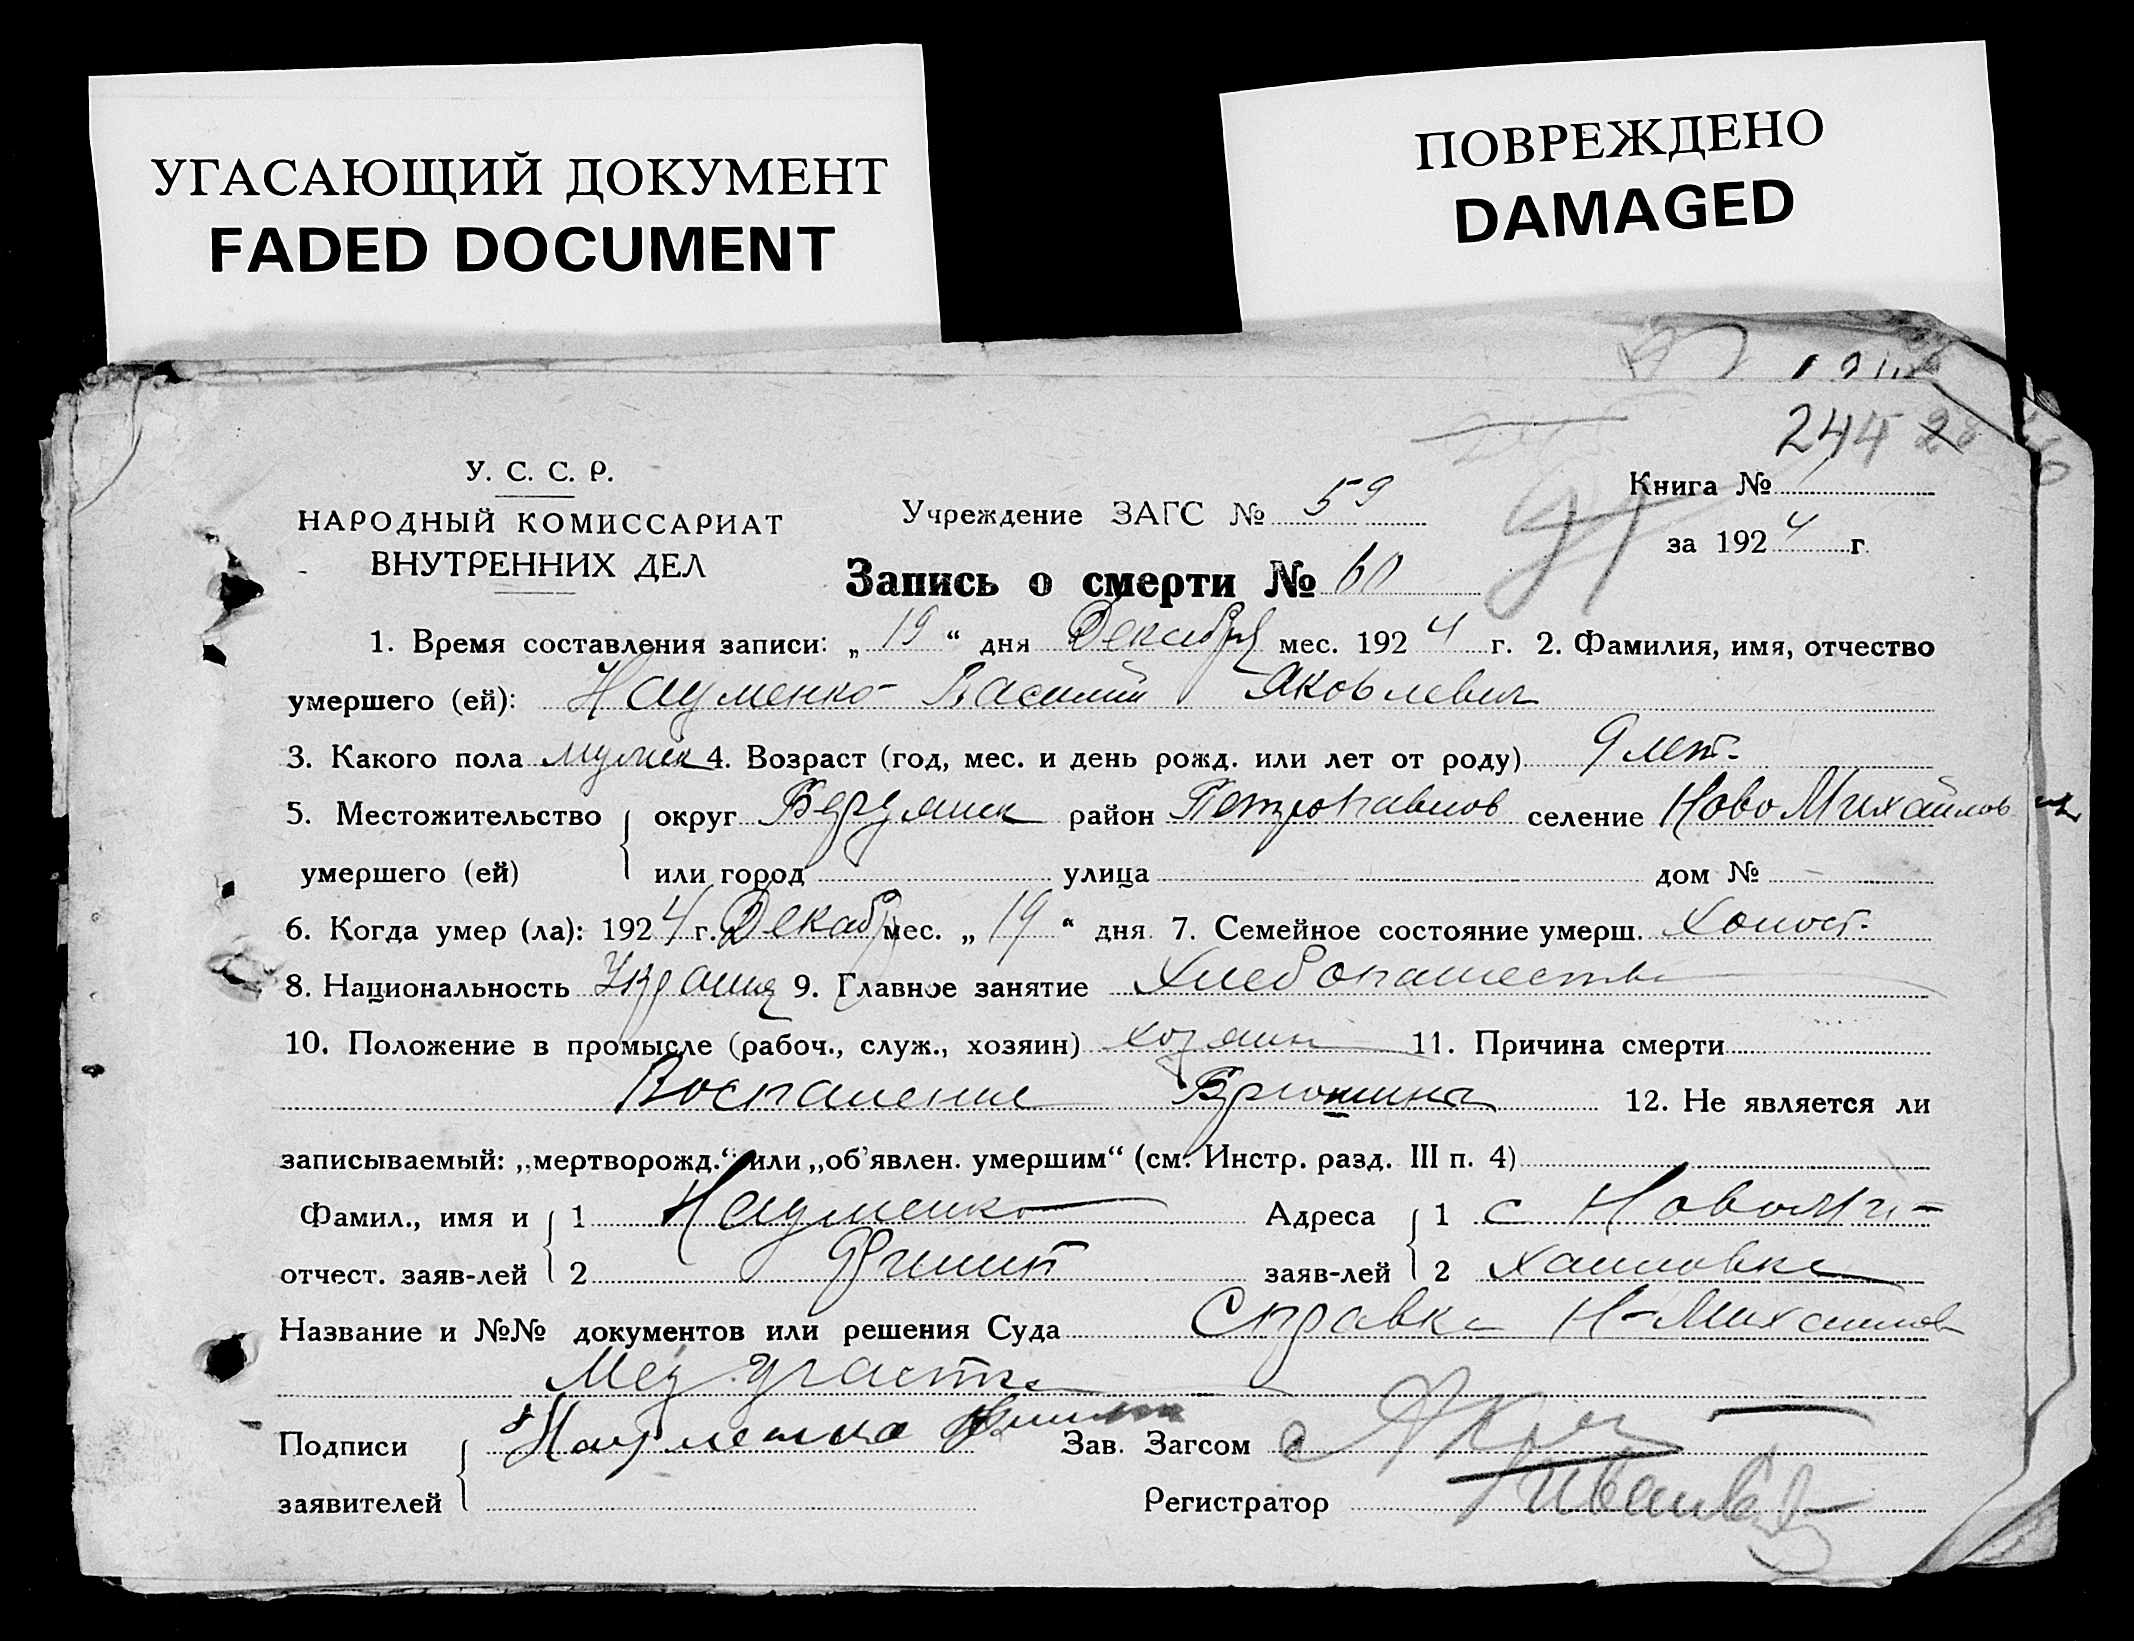 УГАСАЮЩИЙ ДОКУМЕНТ
FADED DOCUMENT
ПОВРЕЖДЕНО
DAMAGED
244 28
У. С. С. Р.
НАРОДНЫЙ КОМИССАРИАТ
ВНУТРЕННИХ ДЕЛ
Учреждение ЗАГС № 59
Книга №
за 1924 г.
Запись о смерти № 60
1. Время составления записи: „19“ дня Декабря мес. 1924 г. 2. Фамилия, имя, отчество
умершего (ей): Науменко Василий Яковлевич
3. Какого пола мужск 4. Возраст (год, мес. и день рожд. или лет от роду) 9 лет.
5. Местожительство округ Бердянск район Петропавлов селение Ново Михайлов
умершего (ей) или город улица дом №
6. Когда умер (ла): 1924 г. Декабр мес. „19“ дня 7. Семейное состояние умерш. Холост.
8. Национальность Украин 9. Главное занятие Хлебопашество
10. Положение в промысле (рабоч., служ., хозяин) хозяин 11. Причина смерти
Воспаление Брюшина 12. Не является ли
записываемый: „мертворожд.“ или „об'явлен. умершим“ (см. Инстр. разд. III п. 4)
Фамил., имя и 1 Науменко Адреса 1 с Новоми-
отчест. заяв-лей 2 Филип заяв-лей 2 хайловка
Название и №№ документов или решения Суда Справка Н-Михайлов
Мед. участка
Подписи Науменко Зав. Загсом
заявителей Регистратор